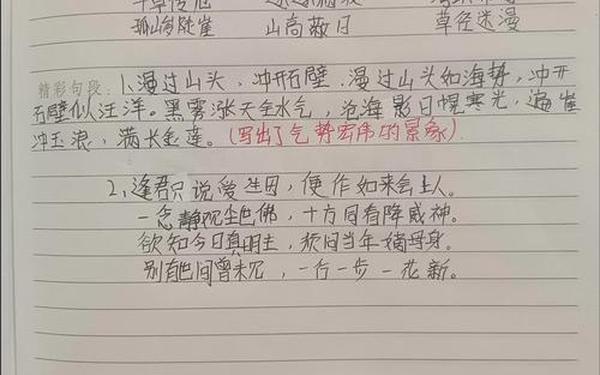 孤峰陡崖 山高蔽日 草径迷漫
精彩句段: 1、漫过山头,冲开石壁.漫过山头如海势,冲开
石壁似汪洋。黑雾涨天全水气,沧海影日幌寒光,遍崖
冲玉浪,满长金莲。(写出了气势宏伟的景象)
2、逢君只说受生因,便作如来会上人。
一念静观尘世佛,十方同看降威神。
欲知今日真明主,须问当年嫡母身。
别有世间曾未见,一行一步一花新。